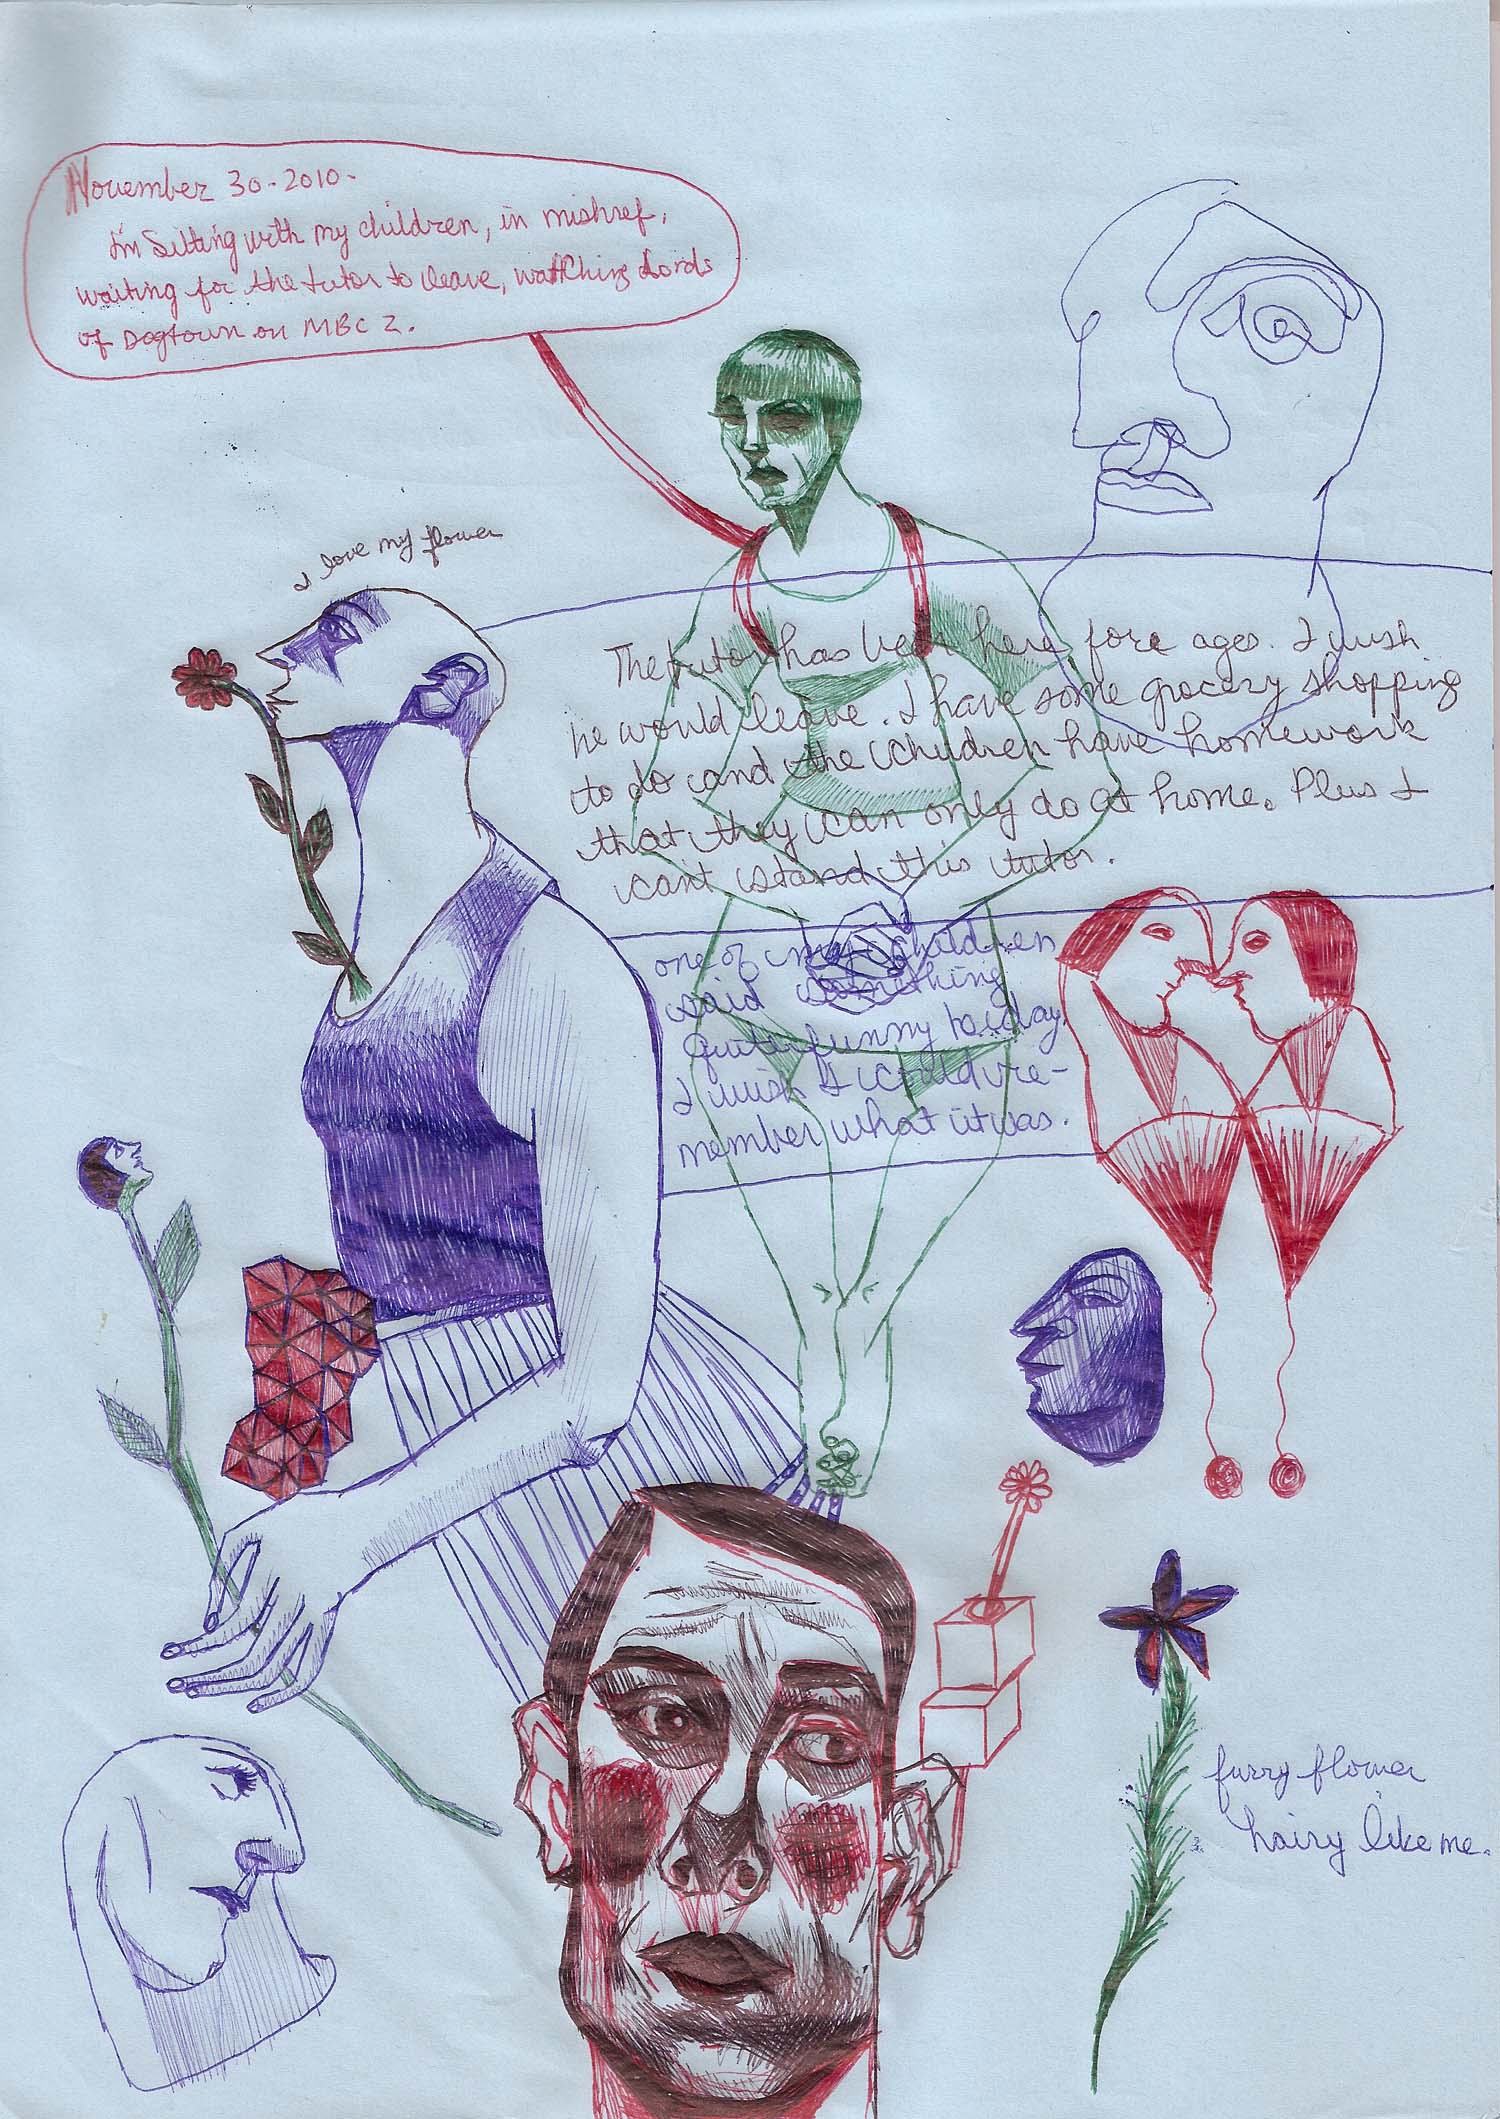 November 30-2010-
I'm Sitting with my children, in mishref,
waiting for the tutor to leave, watching Lords
of Dogtown on MBC 2.
I love my flower
The tutor has been here fore ages. I wish
he would leave. I have some grocery shopping
to do and the children have homework
that they can only do at home. Plus I
cant stand this tutor.
one of my children
said something
quite funny today,
I wish I could re-
member what it was.
furry flower
hairy like me.